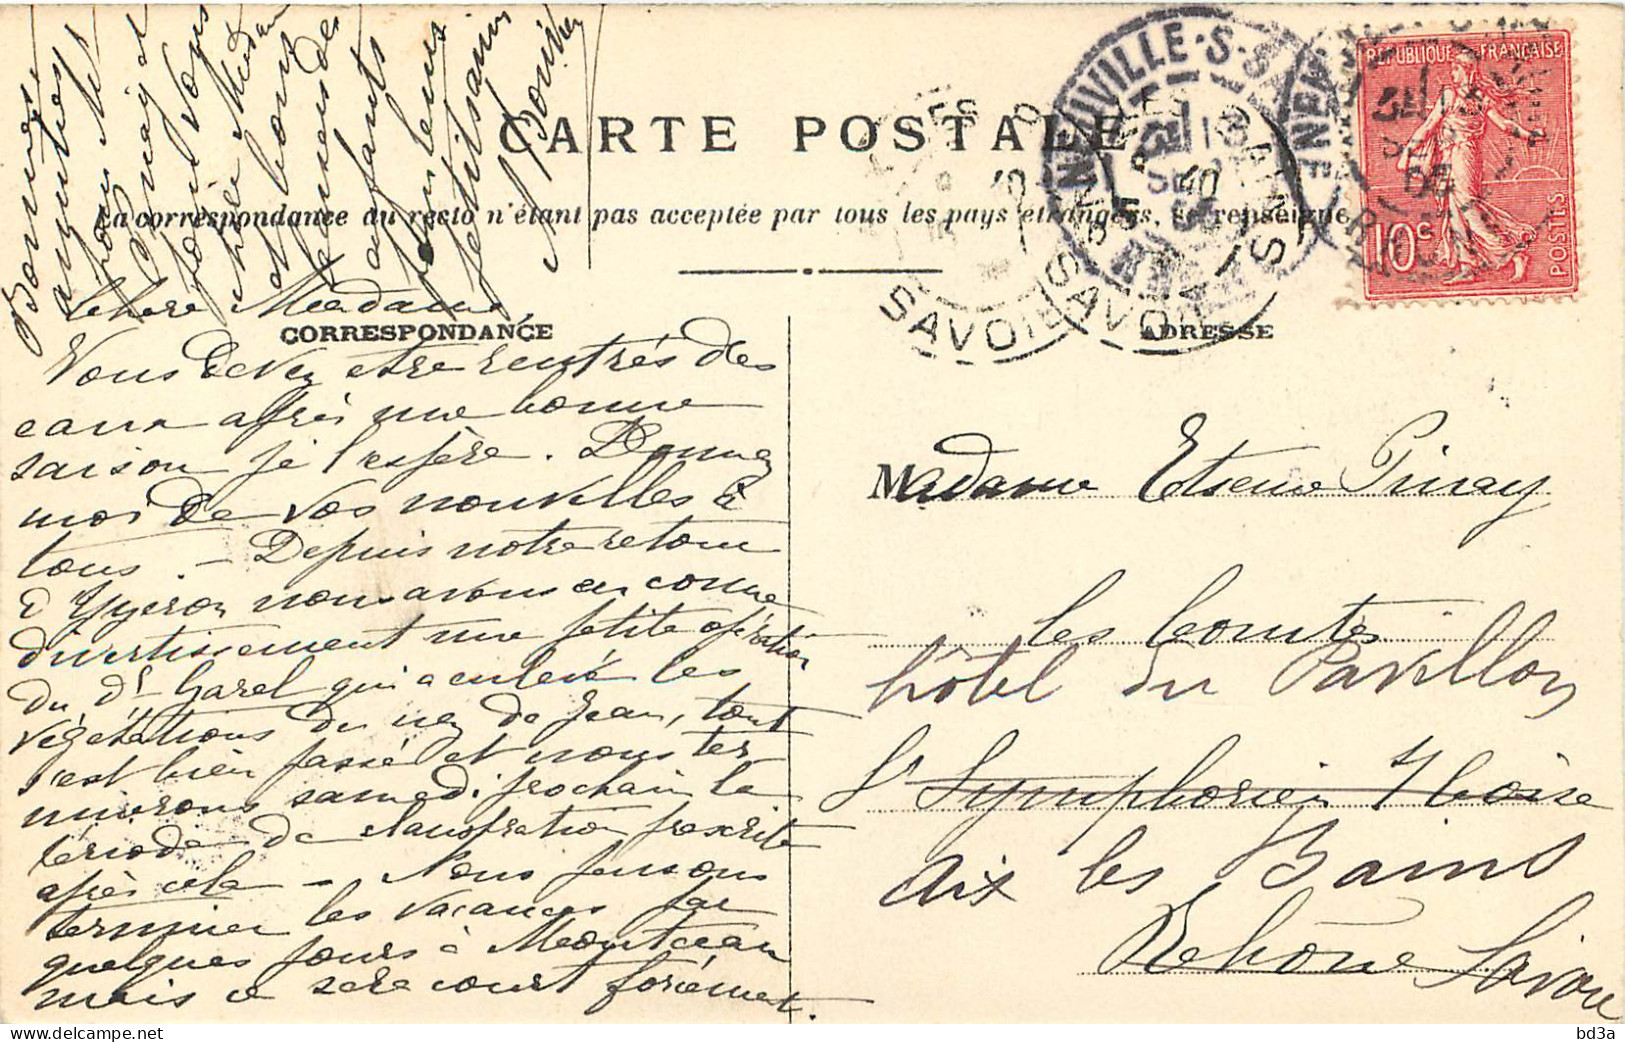 CARTE POSTALE
La correspondance au recto n'étant pas acceptée par tous les pays étrangers, se renseigner
CORRESPONDANCE
ADRESSE
Chère Madame,
Vous devez être rentrés des
eaux après une bonne
saison je l'espère. Donnez
moi de vos nouvelles à
tous. — Depuis notre retour
d'Yzeron nous avons eu comme
divertissement une petite opération
du Dr Garel qui a enlevé les
végétations du nez de Jean, tout
s'est bien passé et nous ter-
minerons samedi prochain la
période de claustration prescrite
après cela — Nous pensons
terminer les vacances par
quelques jours à Montceau
mais ce sera court forcément.
Bonnes
amitiés
pour Mr
Pinay et
pour vous
chère Madame
et bons
baisers des
enfants
à vos
petits amis
M Bouthier
Madame Etienne Pinay
les Comtes
hôtel du Pavillon
St Symphorien d'Ozon Isère
Aix les Bains
Rhône Savoie
REPUBLIQUE FRANÇAISE
10c
POSTES
NEUVILLE-S-S
RHONE
SAVOIE
SAVOIE
bd3a